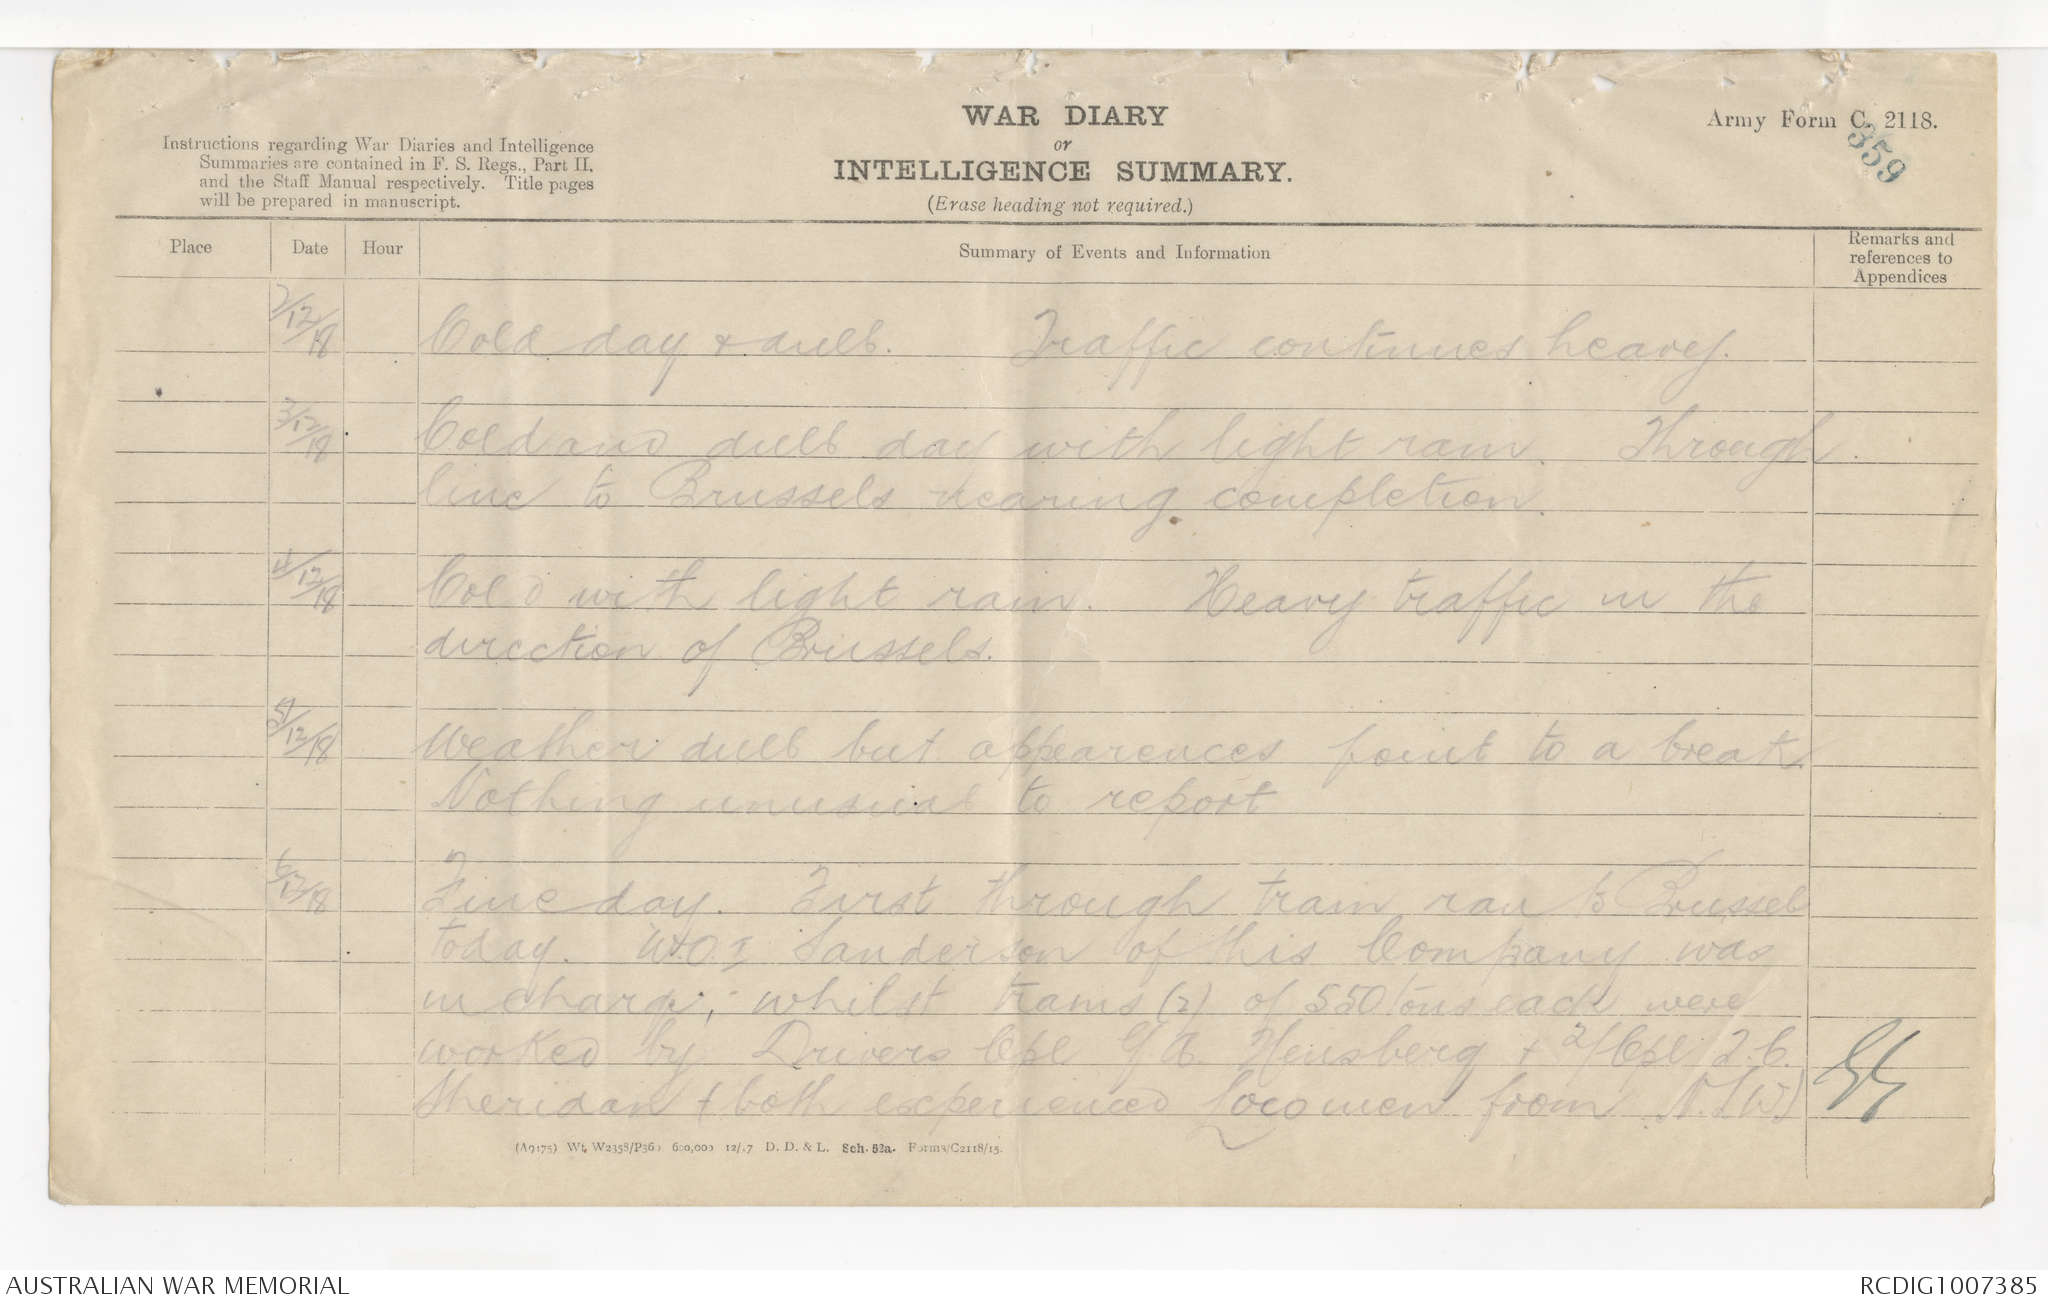 WAR DIARY
or
INTELLIGENCE SUMMARY.
(Erase heading not required.)
Army Form C. 2118.
359
Instructions regarding War Diaries and Intelligence
Summaries are contained in F. S. Regs., Part II.
and the Staff Manual respectively. Title pages
will be prepared in manuscript.
Place Date Hour Summary of Events and Information Remarks and
references to
Appendices
2/12/18 Cold day & dull. Traffic continues heavy.
3/12/18 Cold and dull day with light rain. Through
line to Brussels nearing completion.
4/12/18 Cold with light rain. Heavy traffic in the
direction of Brussels.
5/12/18 Weather dull but appearences point to a break.
Nothing unusual to report
6/12/18 Fine day. First through train ran to Brussels
today. W.O.I Sanderson of this Company was
in charge; whilst trains (2) of 550 tons each were
worked by Drivers Cpl G A. Hensberg & 2/Cpl J.C.
Sheridan & both experienced Locomen from N.S.W.
(A9175) Wt. W2358/P360 600,000 12/17 D. D. & L. Sch. 52a. Forms/C2118/15.
AUSTRALIAN WAR MEMORIAL
RCDIG1007385